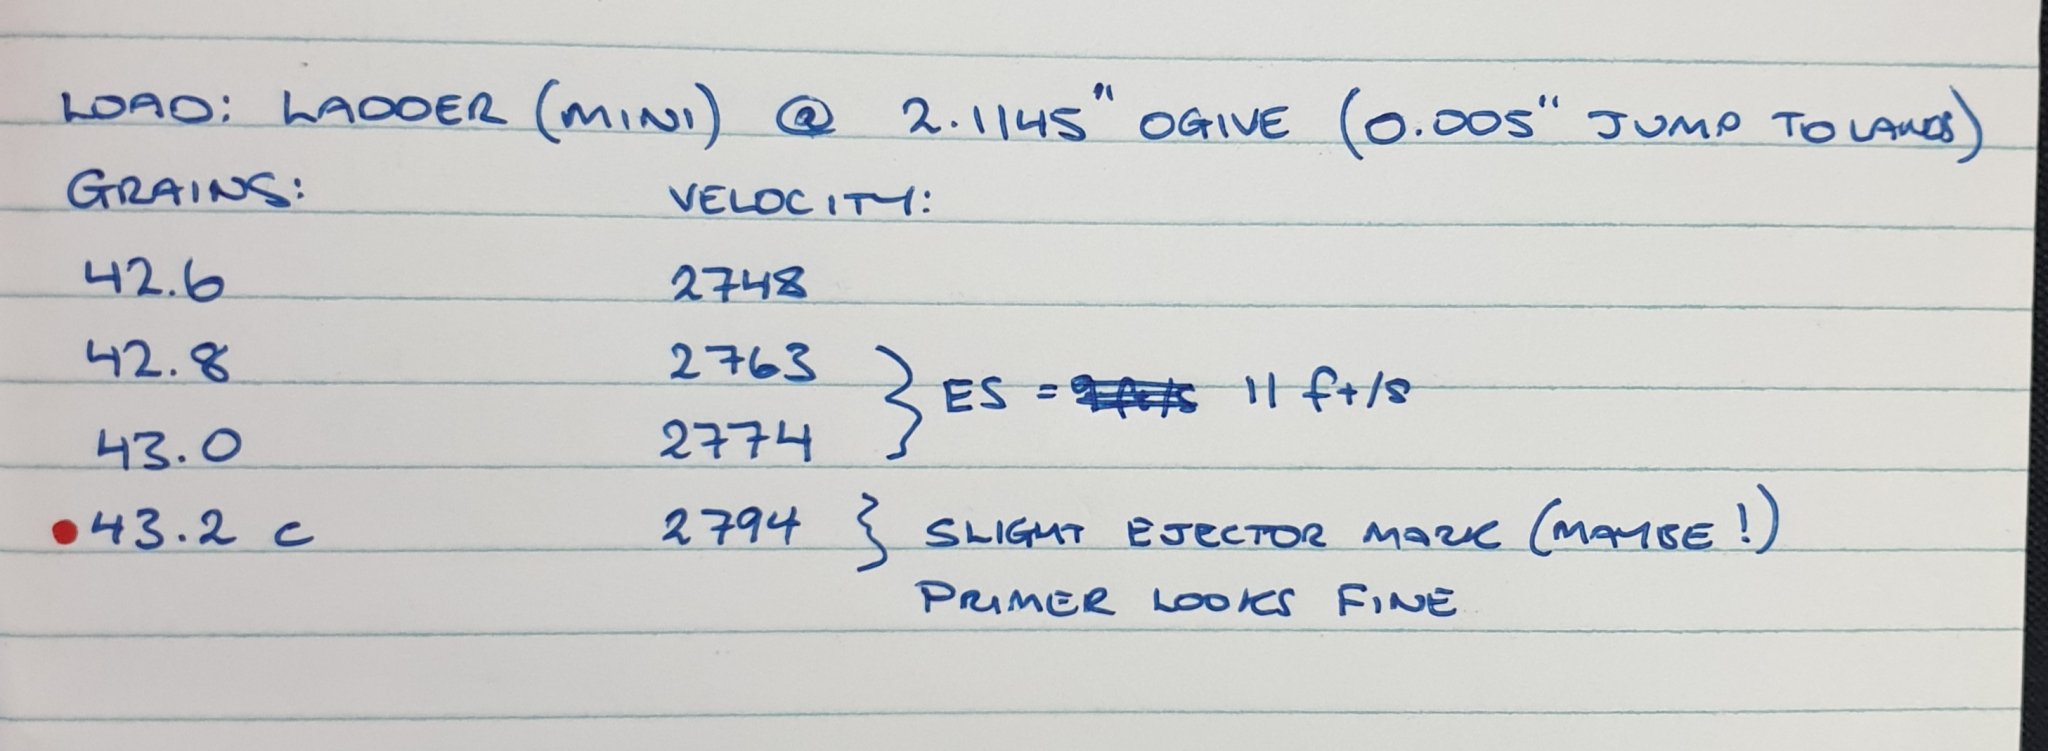 LOAD: LADDER (MINI) @ 2.1145" OGIVE (0.005" JUMP TO LANDS)
GRAINS: VELOCITY:
42.6 2748
42.8 2763
ES = 11 ft/s
43.0 2774
43.2 c 2794 } SLIGHT EJECTOR MARK (MAYBE!)
PRIMER LOOKS FINE